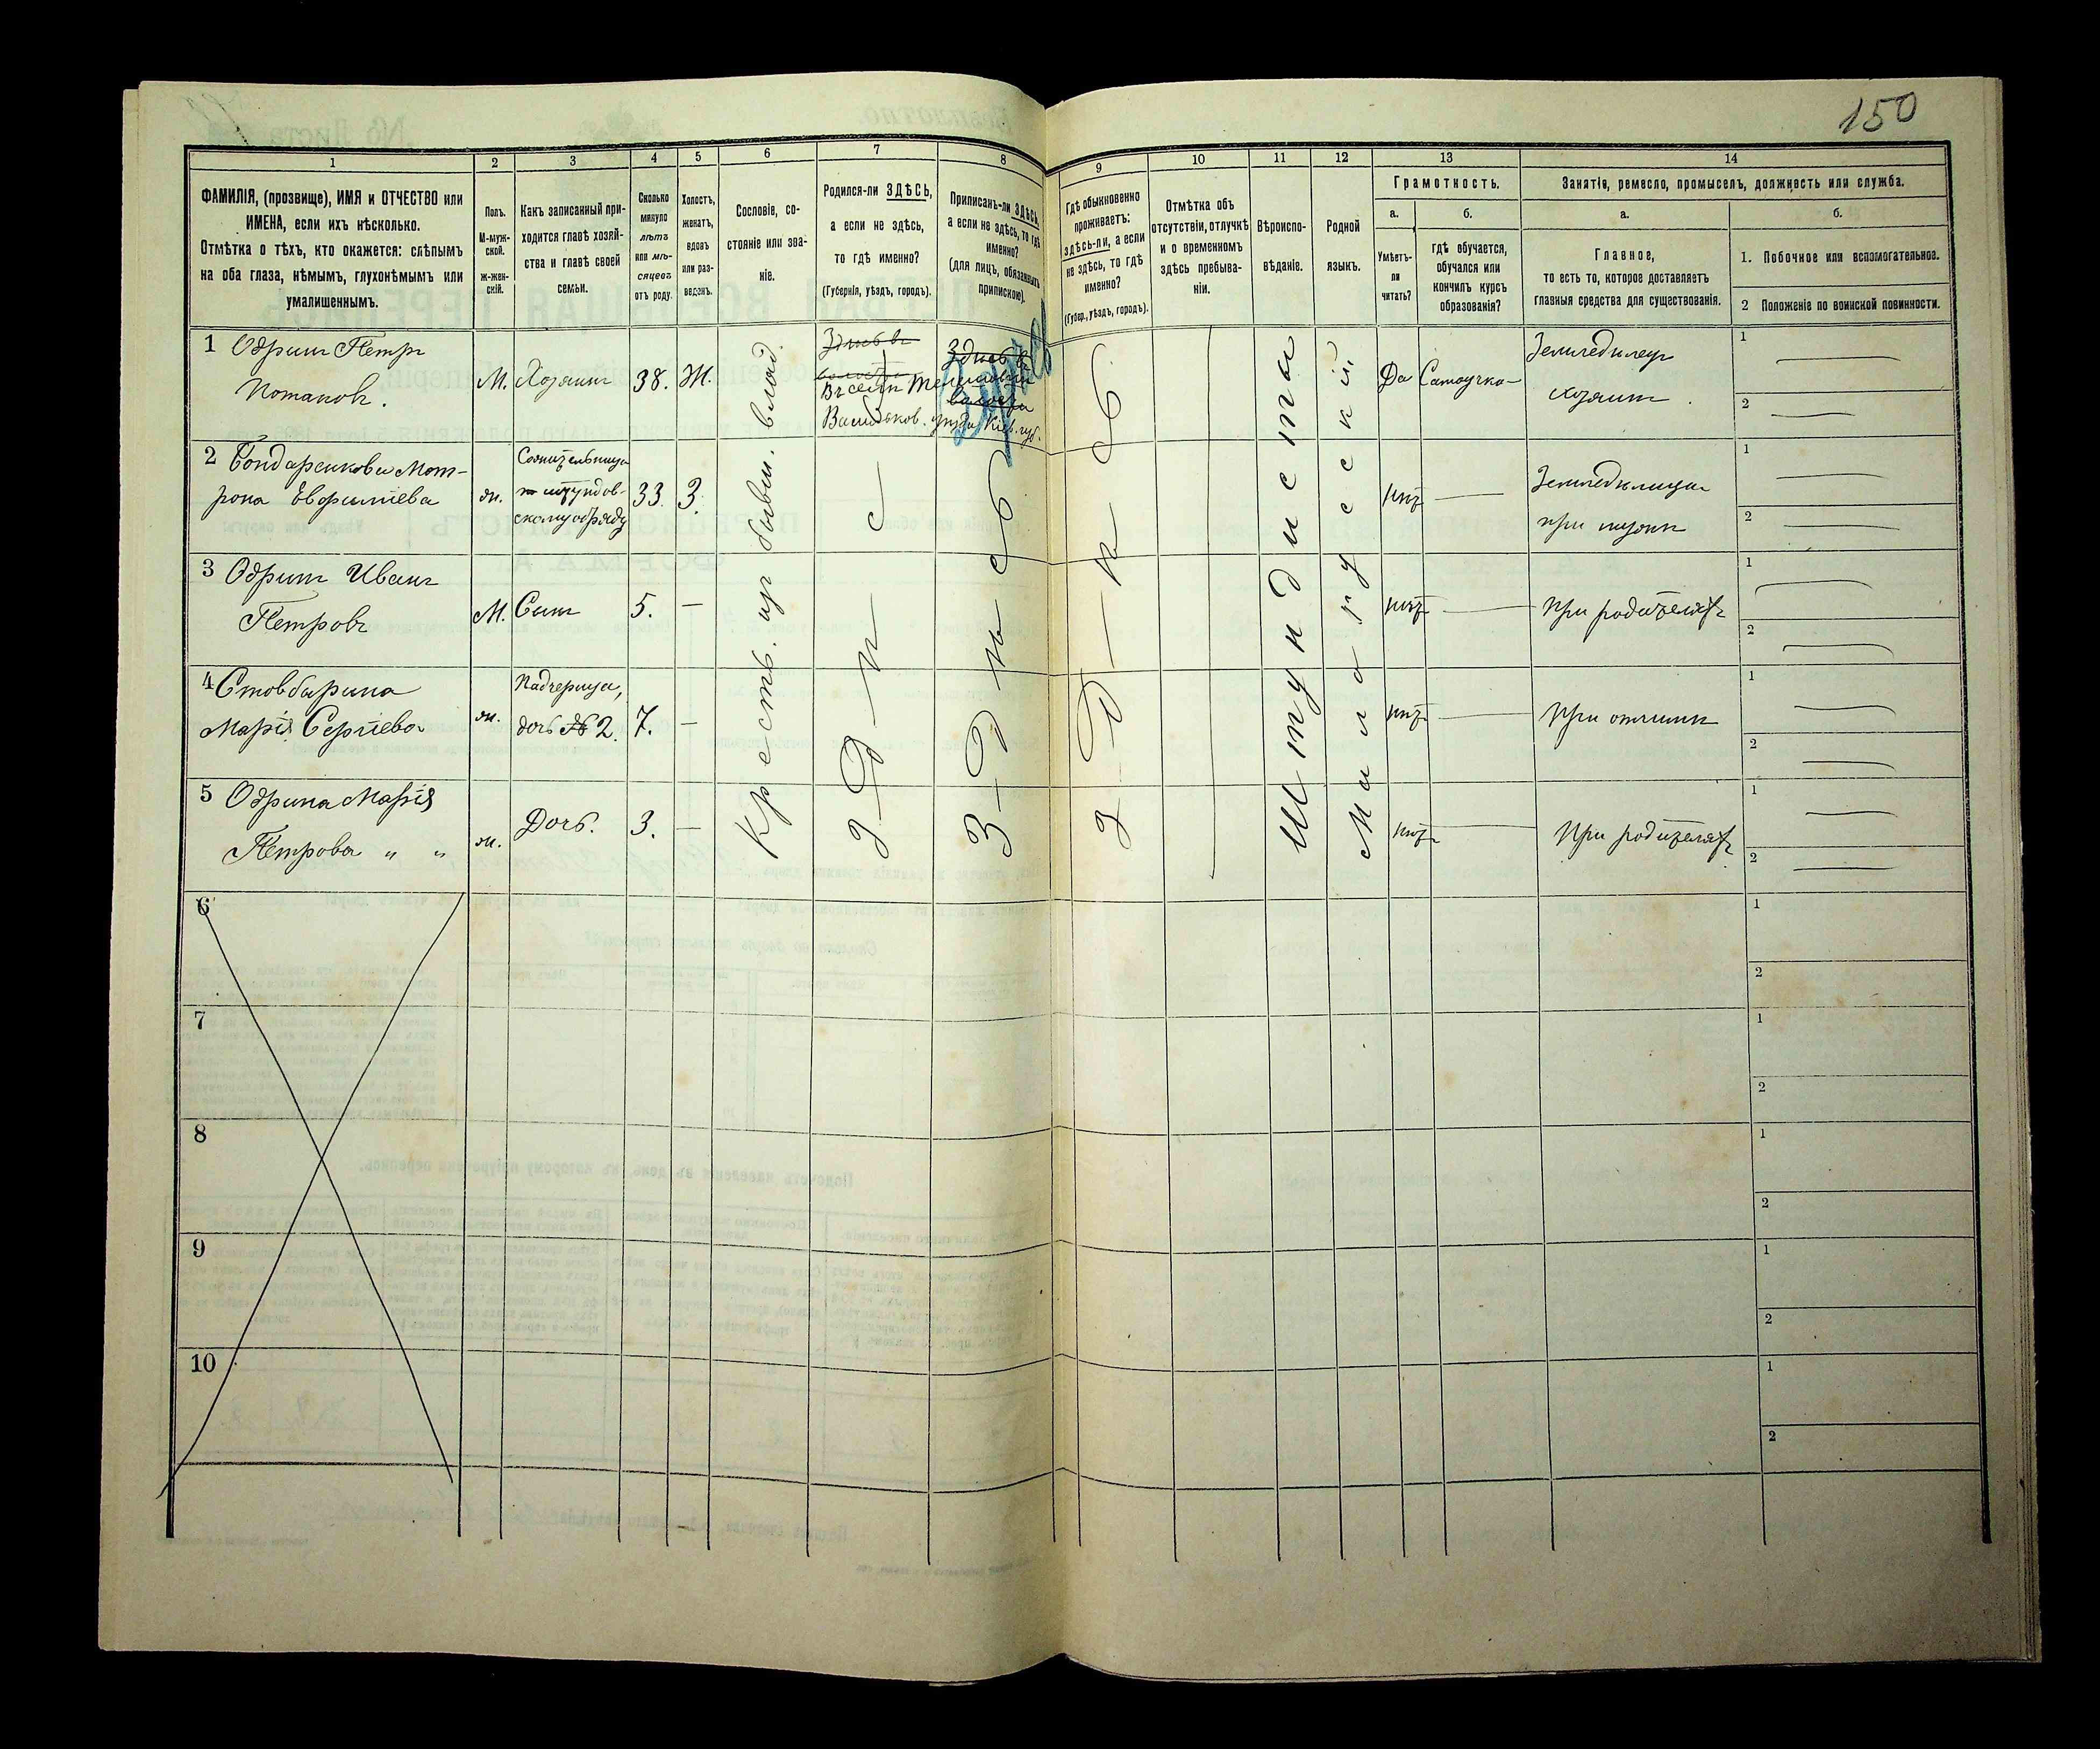 150
1
2
3
4
5
6
7
8
9
10
11
12
13
14
ФАМИЛІЯ, (прозвище), ИМЯ и ОТЧЕСТВО или
ИМЕНА, если ихъ нѣсколько.
Отмѣтка о тѣхъ, кто окажется: слѣпымъ
на оба глаза, нѣмымъ, глухонѣмымъ или
умалишеннымъ.
Полъ.
М-муж-
ской.
Ж-жен-
скій.
Какъ записанный при-
ходится главѣ хозяй-
ства и главѣ своей
семьи.
Сколько
минуло
лѣтъ
или мѣ-
сяцевъ
отъ роду.
Холостъ,
женатъ,
вдовъ
или раз-
веденъ.
Сословіе, со-
стояніе или зва-
ніе.
Родился-ли ЗДѢСЬ,
а если не здѣсь,
то гдѣ именно?
(Губернія, уѣздъ, городъ).
Приписанъ-ли ЗДѢСЬ,
а если не здѣсь, то гдѣ
именно?
(для лицъ, обязанныхъ
припискою).
Гдѣ обыкновенно
проживаетъ:
здѣсь-ли, а если
не здѣсь, то гдѣ
именно?
(Губер., уѣздъ, городъ).
Отмѣтка объ
отсутствіи, отлучкѣ
и о временномъ
здѣсь пребыва-
ніи.
Вѣроиспо-
вѣданіе.
Родной
языкъ.
Грамотность.
а.
Умѣетъ-
ли
читать?
б.
гдѣ обучается,
обучался или
кончилъ курсъ
образованія?
Занятіе, ремесло, промыселъ, должность или служба.
а.
Главное,
то есть то, которое доставляетъ
главныя средства для существованія.
б.
1. Побочное или вспомогательное.
2 Положеніе по воинской повинности.
1 Одринъ Петръ
Потаповъ.
М. Хозяинъ 38. Ж.
Здѣсь въ
волости
Въ селѣ
Васильков. уѣзда Кіев. губ.
Здѣсь въ
волости
Да Самоучка
Земледѣлецъ
хозяинъ.
1
2
2 Бондаренкова Мот-
рона Евфиміева
ж.
Сожительница
по штундов-
скому обряду
33 З.
нѣт
Земледѣлица
при мужѣ
1
2
3 Одринъ Иванъ
Петровъ
М. Сынъ 5. —
нѣт
При родителяхъ
1
2
4 Стовбырина
Марія Сергіева
ж.
Падчерица,
дочь № 2. 7. —
нѣт
При отчимѣ
1
2
5 Одрина Марія
Петрова „ „
ж. Дочь. 3. —
нѣт
При родителяхъ
1
2
Крестьь. изъ бывш. влад.
З-д-ѣ-с-
З-д-ѣ-сь
З-д-ѣ-сь
Штундисты
Малорусскій.
6
1
2
7
1
2
8
1
2
9
1
2
10
1
2